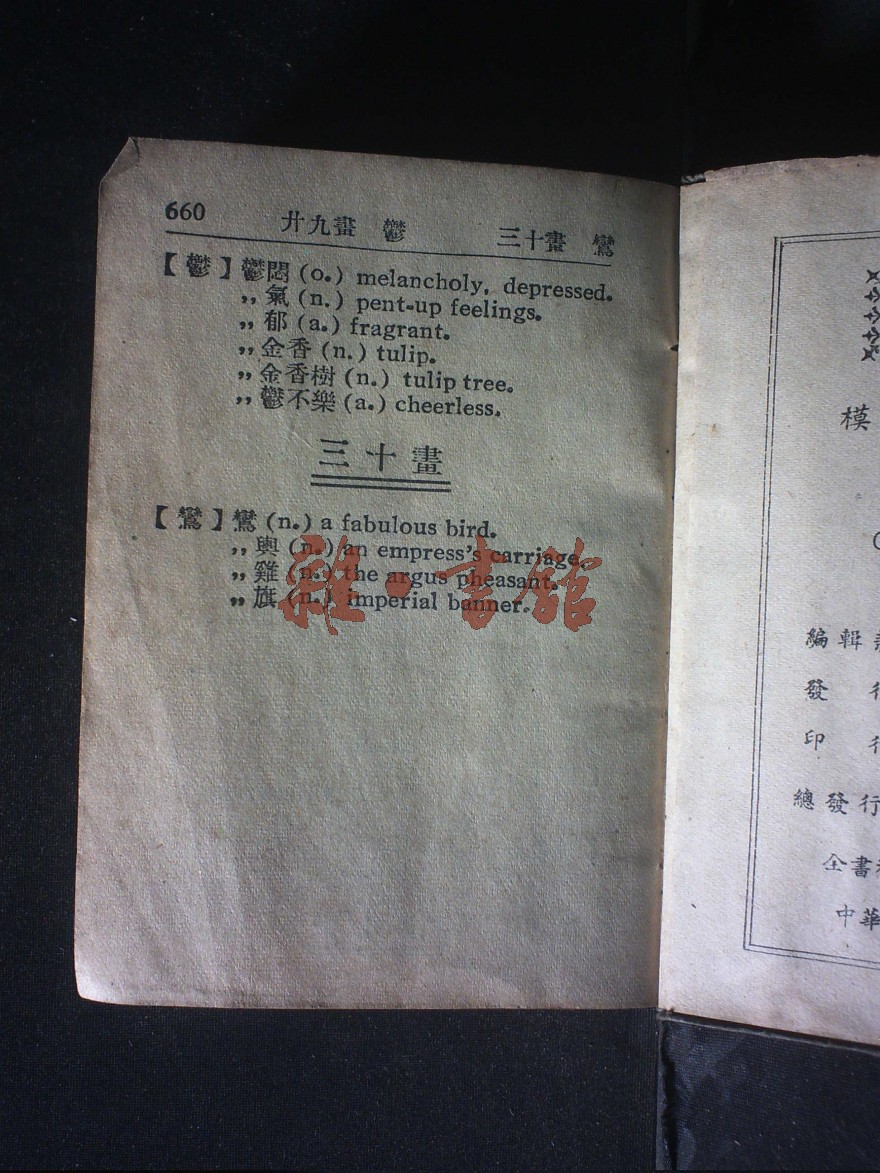 660 廿九畫 鬱 三十畫 鸞
【鬱】鬱悶 (o.) melancholy, depressed.
,, 氣 (n.) pent-up feelings.
,, 郁 (a.) fragrant.
,, 金香 (n.) tulip.
,, 金香樹 (n.) tulip tree.
,, 鬱不樂 (a.) cheerless.
三十畫
【鸞】鸞 (n.) a fabulous bird.
,, 輿 (n.) an empress's carriage.
,, 雞 (n.) the argus pheasant.
,, 旗 (n.) imperial banner.
雜·書館
模
編輯
發 行
印 行
總發行
全書
中華